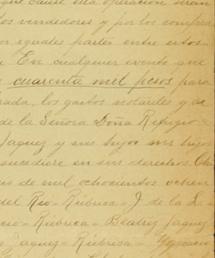 que cause esta operación serán
os vendedores y por los compra
or iguales partes entre estos
En cualquier evento que
cuarenta mil pesos para
rada, los gastos notariales y de
de la Señora Doña Refugio
Jaquez y sus hijos sus hijos
sucediere en sus derechos
os de mil ochocientos ochen
del Rio - Rúbrica - J. de la L.
cio - Rúbrica - Beatriz Jaquez
Jaquez - Rúbrica - Ygnacio